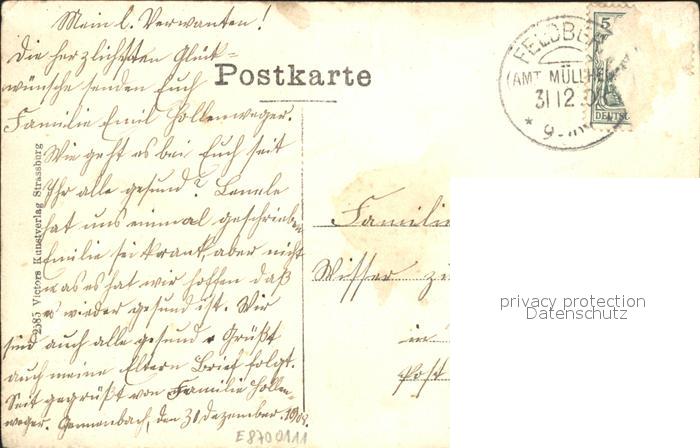 Mein l. Verwanten!
Die herzlichsten Glück-
wünsche senden Euch
Familie Emil Hollenweger.
Wie geht es bei Euch seit
Ihr alle gesund?
hat uns einmal geschrieben
Emilie sei krank, aber nicht
was es hat wir hoffen daß
es wieder gesund ist. Wir
sind auch alle gesund. Grüßt
auch meine Eltern Brief folgt.
Seit gegrüßt von Familie Hollen
weger. Gennenbach, den 31 Dezember. 1909.
Postkarte
2985 Victors Kunstverlag Strassburg
FELDBE
(AMT MÜLLHE
31 12
* 9-
5
DEUTSC
Familie
Wisser zu
in
Post
privacy protection
Datenschutz
E8700111